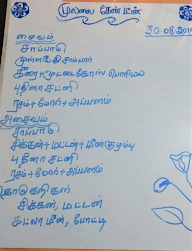 முல்லை கேண்டீன்
30-08-2019
சைவம்
சாப்பாடு
முள்ளங்கி சாம்பார்
கீரை+முட்டைகோஸ் பொரியல்
புதினா சட்னி
ரசம்+மோர்+அப்பளம்
அசைவம்
சாப்பாடு
சிக்கன்+மட்டன்+மீன்குழம்பு
புதினா சட்னி
ரசம்+மோர்+அப்பளம்
தொடுகறிகள்
சிக்கன், மட்டன்
கட்லா மீன், போட்டி